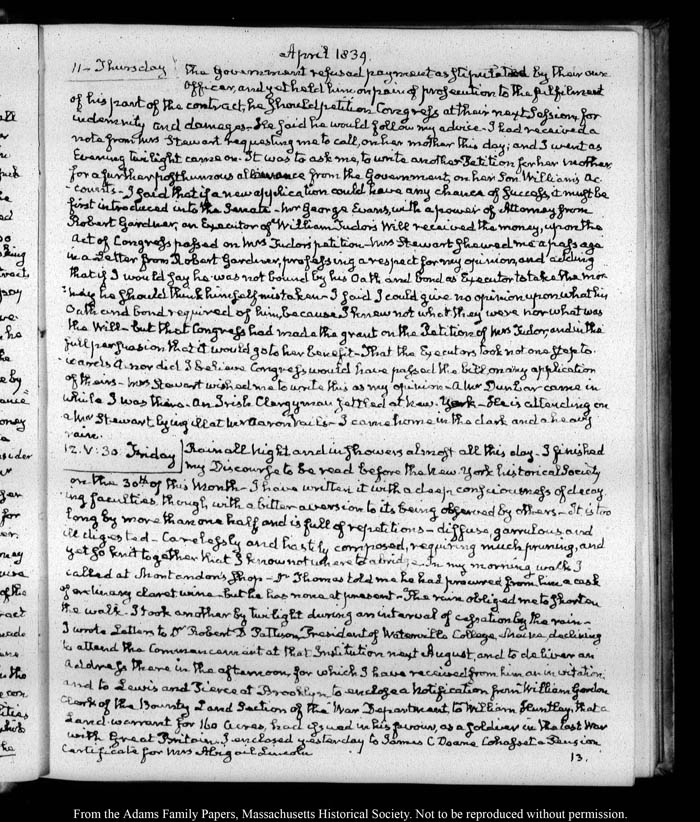 April 1839.
11 - Thursday
The Government refused payment as stipulated by their own
Officer, and yet held him on pain of prosecution to the fulfilment
of his part of the contract, he should petition Congress at their next Session, for
indemnity and damages - He said he would follow my advice. I had received a
note from Mrs Stewart requesting me to call, on her mother this day; and I went as
Evening twilight came on. It was to ask me, to write another Petition for her mother
for a further posthumous allowance from the Government, on her Son William's Ac-
counts - I said that if a new application could have any chance of success, it must be
first introduced into the Senate - Mr George Evans, with a power of Attorney from
Robert Gardner, an Executor of William Tudor's Will received the money, upon the
Act of Congress passed on Mrs Tudor's petition - Mrs Stewart shewed me a passage
in a Letter from Robert Gardner, professing a respect for my opinion, and adding
that if I would say he was not bound by his Oath and bond as Executor to take the mon-
ey he should think himself mistaken - I said I could give no opinion upon what his
Oath and bond required of him, because I knew not what they were nor what was
the Will - but that Congress had made the grant on the Petition of Mrs Tudor, and in the
full persuasion that it would go to her benefit - That the Executors took not one step to-
wards it, nor did I believe Congress would have passed the bill on any application
of theirs - Mrs Stewart wished me to write this as my opinion - A Mr Dunbar came in
while I was there. An Irish Clergyman settled at New-York - He is attending on
a Mr Stewart lying ill at Mr Aaron Vail's - I came home in the dark and a heavy
rain.
12. V:30. Friday
Rain all Night and in showers almost all this day - I finished
my Discourse to be read before the New-York historical Society
on the 30th of this Month - I have written it with a deep consciousness of decay-
ing faculties, though with a bitter aversion to its being observed by others - It is too
long by more than one half and is full of repetitions - diffuse, garrulous, and
ill digested - Carelessly and hastily composed, requiring much pruning, and
yet so knit together that I know not where to abridge. In my morning walk I
called at Montandon's Shop - Dr Thomas told me he had procured from him a cask
of ordinary claret wine - but he has none at present - The rain obliged me to shorten
the walk. I took another by twilight during an interval of cessation by the rain -
I wrote Letters to Dr Robert D Pattison, President of Waterville College, Maine, declining
to attend the Commencement at that Institution next August, and to deliver an
Address there in the afternoon, for which I have received from him an invitation;
and to Lewis and Pierce at Brooklyn to enclose a Notification from William Gordon
Clerk of the Bounty Land Section of the War Department, to William Huntley, that a
Land-warrant for 160 Acres, had issued in his favour, as a soldier in the last War
with Great Britain. I enclosed yesterday to James C Doane Cohasset a Pension
Certificate for Mrs Abigail Lincoln
13.
From the Adams Family Papers, Massachusetts Historical Society. Not to be reproduced without permission.